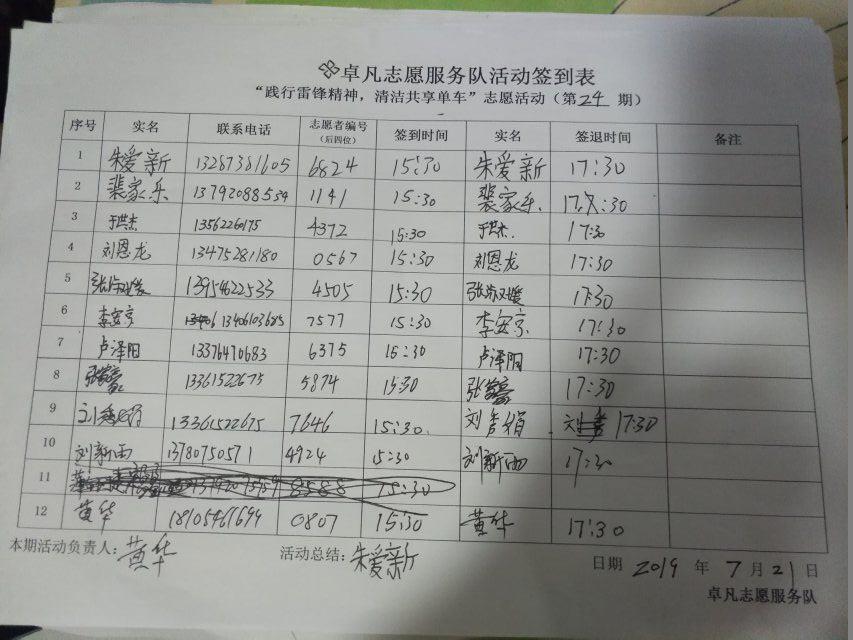 卓凡志愿服务队活动签到表
“践行雷锋精神，清洁共享单车”志愿活动（第24期）
序号 实名 联系电话 志愿者编号（后四位） 签到时间 实名 签退时间 备注
1 朱爱新 13287381605 6824 15:30 朱爱新 17:30
2 裴家乐 13792088534 1141 15:30 裴家乐 17:30
3 于洪杰 13562260175 4372 15:30 于洪杰 17:30
4 刘恩龙 13475281180 0567 15:30 刘恩龙 17:30
5 13954622533 4505 15:30 17:30
6 李安京 13406103685 7577 15:30 李安京 17:30
7 卢泽阳 13376470683 6375 15:30 卢泽阳 17:30
8 13361522675 5874 15:30 17:30
9 13361522675 7646 15:30 17:30
10 刘新雨 13780750571 4924 15:30 刘新雨 17:30
11 8588 15:30
12 黄华 18105461699 0807 15:30 黄华 17:30
本期活动负责人：黄华 活动总结：朱爱新 日期 2019 年 7 月 21 日
卓凡志愿服务队